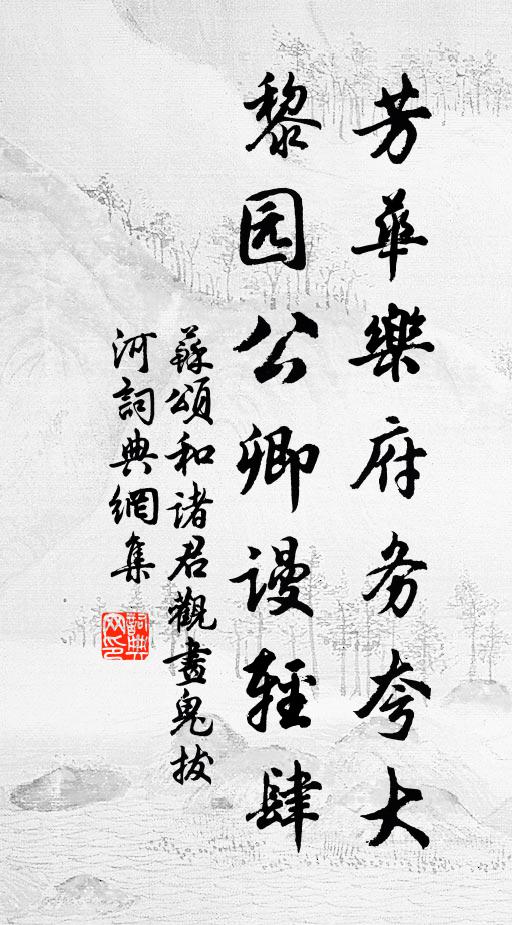 芳华樂府务夸大
黎园公卿谩輕肆
蘇頌和诸君觀畫鬼拔
河詞典網集
詞典网印